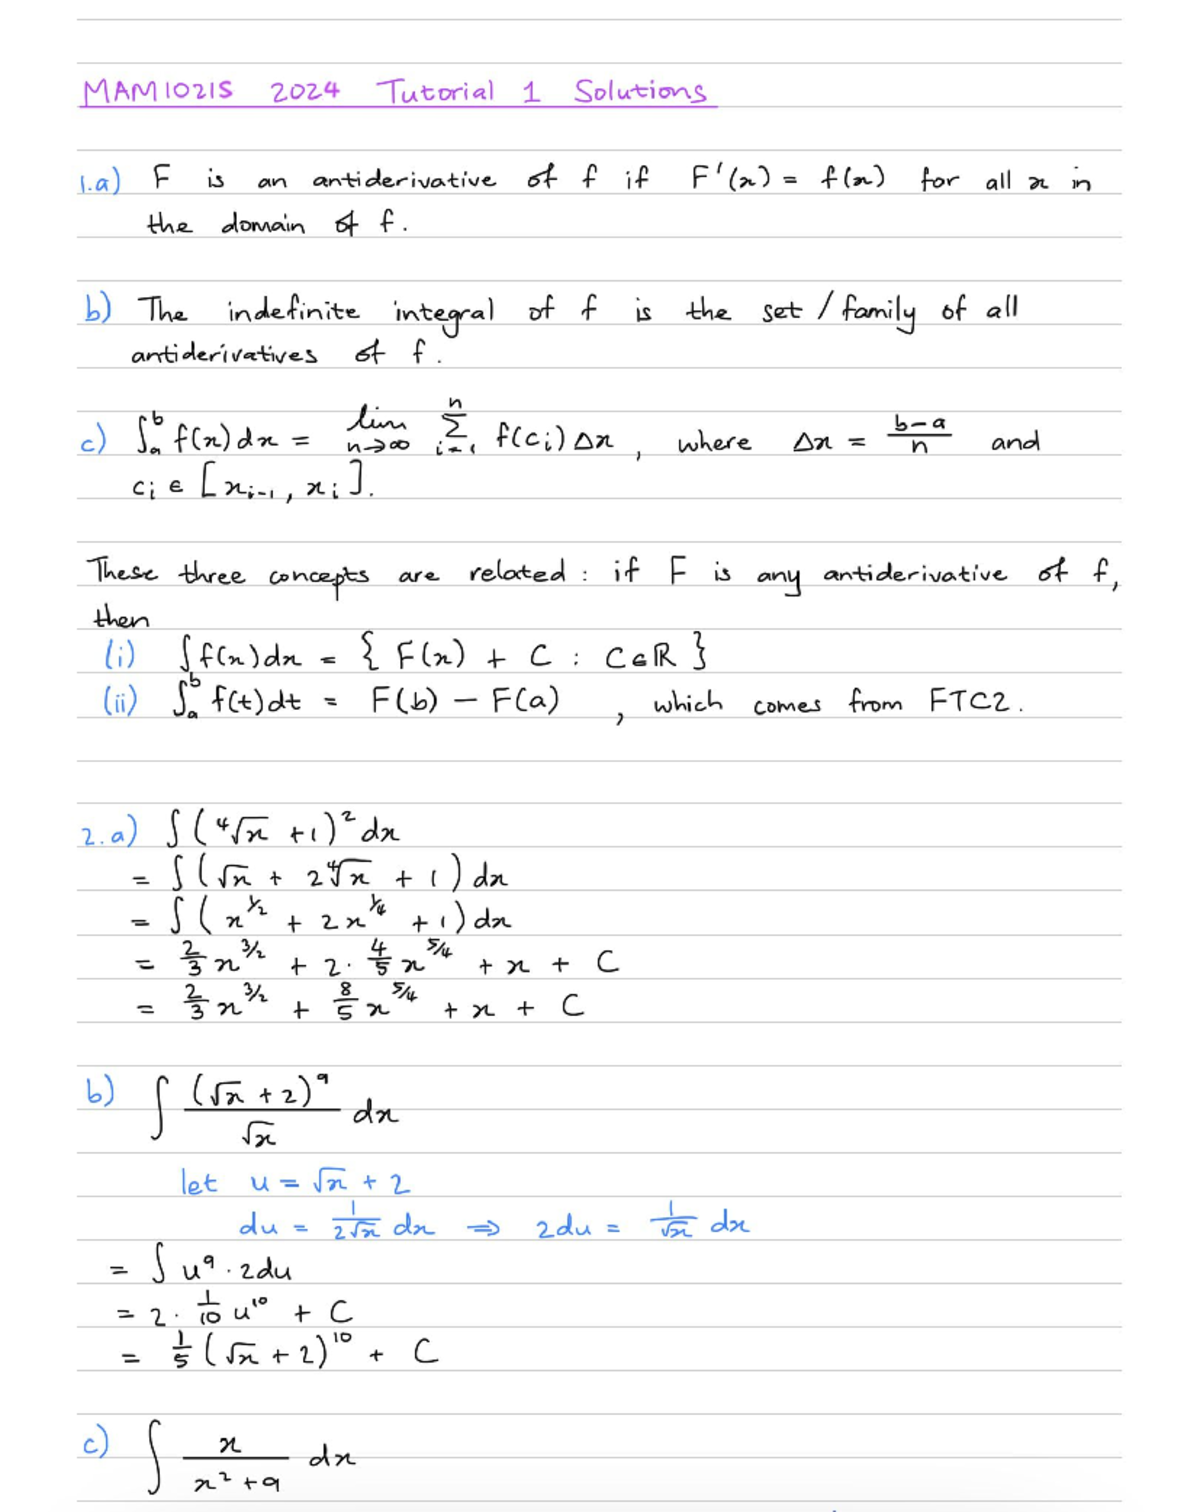 MAM1021S 2024 Tutorial 1 Solutions
1.a) F is an antiderivative of f if F'(x) = f(x) for all x in
the domain of f.
b) The indefinite integral of f is the set / family of all
antiderivatives of f.
c) ∫ₐᵇ f(x) dx = lim n→∞ Σ i=1 n f(ci) Δx , where Δx = (b-a)/n and
ci ∈ [xi-1, xi].
These three concepts are related : if F is any antiderivative of f,
then
(i) ∫ f(x) dx = { F(x) + C : C ∈ ℝ }
(ii) ∫ₐᵇ f(t) dt = F(b) − F(a) , which comes from FTC2.
2. a) ∫ (⁴√x + 1)² dx
= ∫ (√x + 2⁴√x + 1) dx
= ∫ (x^1/2 + 2x^1/4 + 1) dx
= 2/3 x^3/2 + 2 · 4/5 x^5/4 + x + C
= 2/3 x^3/2 + 8/5 x^5/4 + x + C
b) ∫ (√x + 2)⁹ / √x dx
let u = √x + 2
du = 1/(2√x) dx ⇒ 2du = 1/√x dx
= ∫ u⁹ · 2du
= 2 · 1/10 u¹⁰ + C
= 1/5 (√x + 2)¹⁰ + C
c) ∫ x / (x² + 9) dx